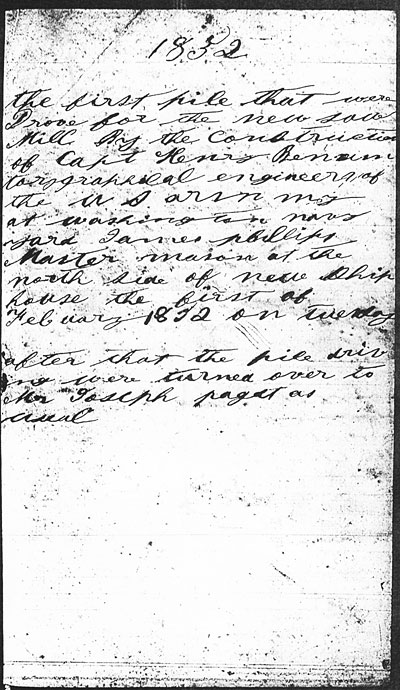 1852
the first pile that were
Drove for the new saw
Mill By the Construction
of Capt Henry Benam
topographical engineers of
the U S arm my
at washington navy
yard James phillips
Master mason at the
north side of new Ship
house the first of
Febuary 1852 on tuesday
after that the pile driv
ng were turned over to
Mr Joseph padgt as
usual